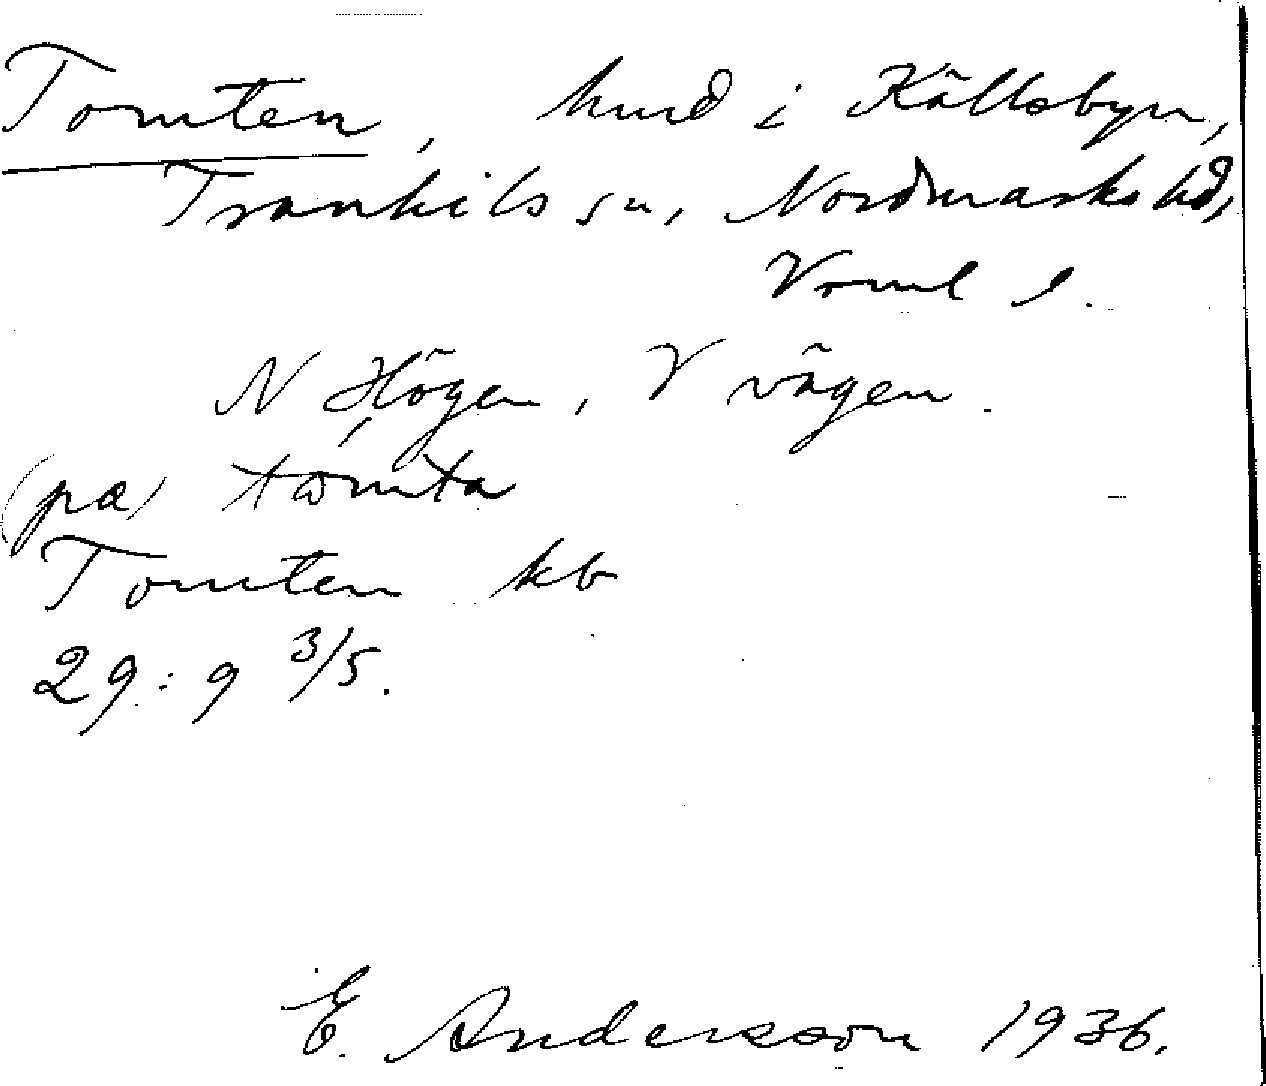 Tomten, hmd i Källsbyn,
Trankils sn, Nordmarks hd,
Vrml l.
N Högen, V vägen.
(pa) tomta
Tomten kb
29:9 3/5.
E. Andersson 1936.